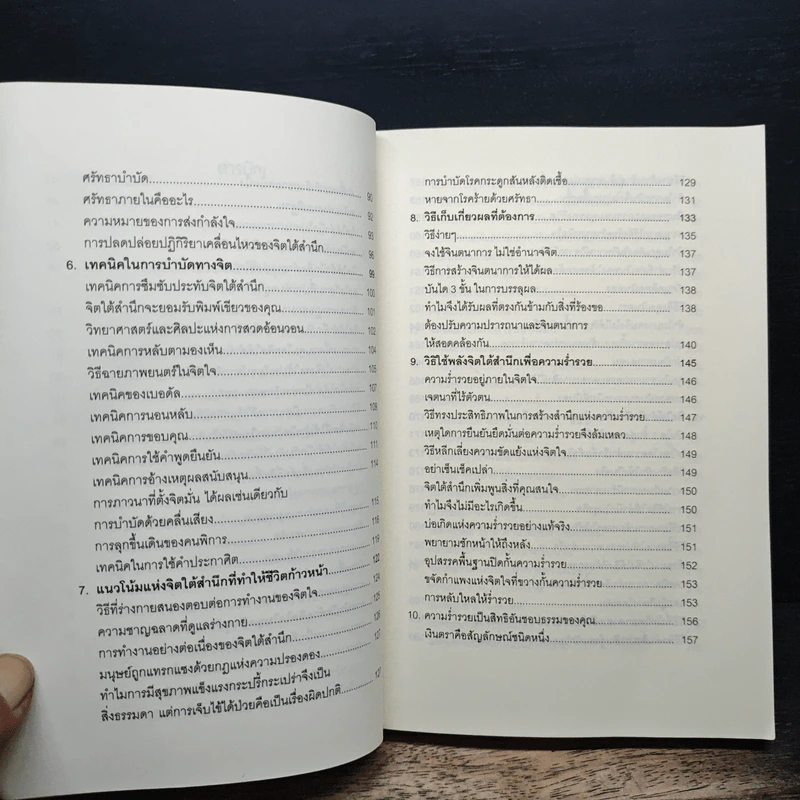 ศรัทธาบำบัด 90
ศรัทธาภายในคืออะไร 92
ความหมายของการส่งกำลังใจ 93
การปลดปล่อยปฏิกิริยาเคลื่อนไหวของจิตใต้สำนึก 96
6. เทคนิคในการบำบัดทางจิต 99
เทคนิคการซึมซับประทับจิตใต้สำนึก 100
จิตใต้สำนึกจะยอมรับพิมพ์เขียวของคุณ 101
วิทยาศาสตร์และศิลปะแห่งการสวดอ้อนวอน 102
เทคนิคการหลับตามองเห็น 104
วิธีฉายภาพยนตร์ในจิตใจ 105
เทคนิคของเบอดัล 107
เทคนิคการนอนหลับ 109
เทคนิคการขอบคุณ 110
เทคนิคการใช้คำพูดยืนยัน 111
เทคนิคการอ้างเหตุผลสนับสนุน 114
การภาวนาที่ตั้งจิตมั่น ได้ผลเช่นเดียวกับ
การบำบัดด้วยคลื่นเสียง 115
การลุกขึ้นเดินของคนพิการ 118
เทคนิคในการใช้คำประกาศิต 119
7. แนวโน้มแห่งจิตใต้สำนึกที่ทำให้ชีวิตก้าวหน้า 122
วิธีที่ร่างกายสนองตอบต่อการทำงานของจิตใจ 124
ความชาญฉลาดที่ดูแลร่างกาย 125
การทำงานอย่างต่อเนื่องของจิตใต้สำนึก 126
มนุษย์ถูกแทรกแซงด้วยกฎแห่งความปรองดอง 127
ทำไมการมีสุขภาพแข็งแรงกระปรี้กระเปร่าจึงเป็น
สิ่งธรรมดา แต่การเจ็บไข้ได้ป่วยคือเป็นเรื่องผิดปกติ
การบำบัดโรคกระดูกสันหลังติดเชื้อ 129
หายจากโรคร้ายด้วยศรัทธา 131
8. วิธีเก็บเกี่ยวผลที่ต้องการ 133
วิธีง่ายๆ 135
จงใช้จินตนาการ ไม่ใช่อำนาจจิต 137
วิธีการสร้างจินตนาการให้ได้ผล 137
บันได 3 ขั้น ในการบรรลุผล 138
ทำไมจึงได้รับผลที่ตรงกันข้ามกับสิ่งที่ร้องขอ 138
ต้องปรับความปรารถนาและจินตนาการ
ให้สอดคล้องกัน 140
9. วิธีใช้พลังจิตใต้สำนึกเพื่อความร่ำรวย 145
ความร่ำรวยอยู่ภายในจิตใจ 146
เจตนาที่ไร้ตัวตน 146
วิธีทรงประสิทธิภาพในการสร้างสำนึกแห่งความร่ำรวย 147
เหตุใดการยืนยันยึดมั่นต่อความร่ำรวยจึงล้มเหลว 148
วิธีหลีกเลี่ยงความขัดแย้งแห่งจิตใจ 149
อย่าเซ็นเช็คเปล่า 149
จิตใต้สำนึกเพิ่มพูนสิ่งที่คุณสนใจ 150
ทำไมจึงไม่มีอะไรเกิดขึ้น 150
บ่อเกิดแห่งความร่ำรวยอย่างแท้จริง 151
พยายามชักหน้าให้ถึงหลัง 151
อุปสรรคพื้นฐานปิดกั้นความร่ำรวย 152
ขจัดกำแพงแห่งจิตใจที่ขวางกั้นความร่ำรวย 153
การหลับใหลให้ร่ำรวย 153
10. ความร่ำรวยเป็นสิทธิอันชอบธรรมของคุณ 156
เงินตราคือสัญลักษณ์ชนิดหนึ่ง 157